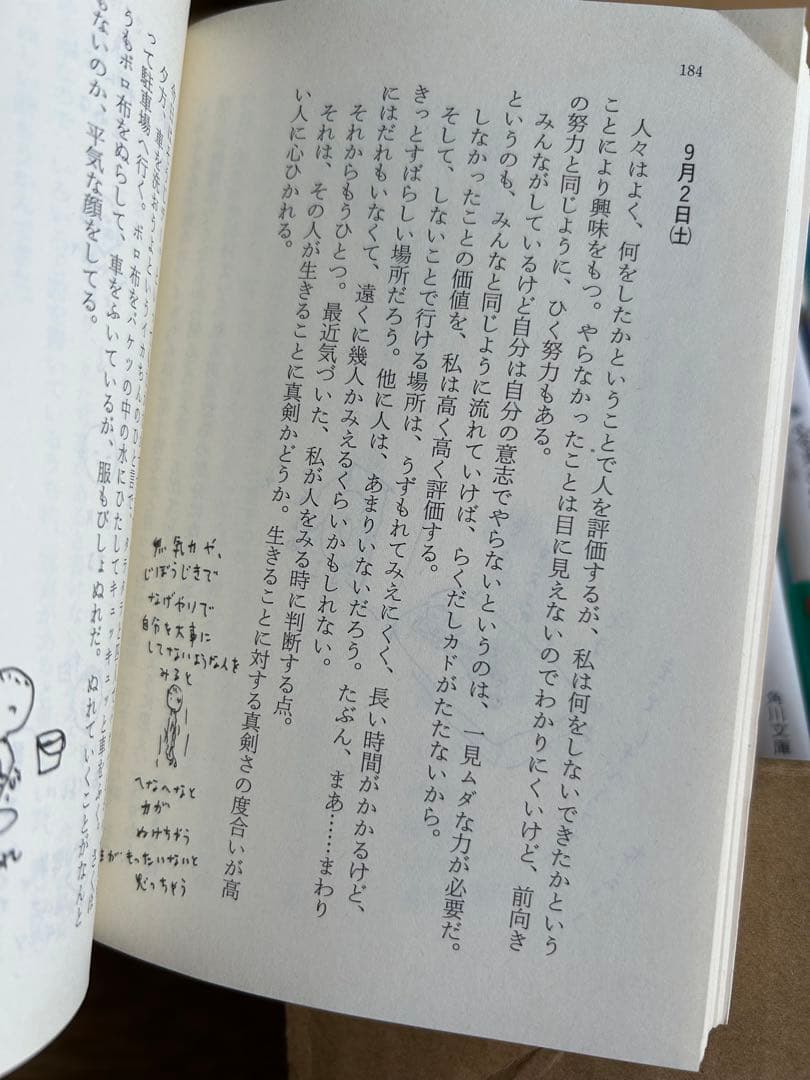 184
9月2日(土)
人々はよく、何をしたかということで人を評価するが、私は何をしないできたかという
ことにより興味をもつ。やらなかったことは目に見えないのでわかりにくいけど、前向き
の努力と同じように、ひく努力もある。
みんながしているけど自分は自分の意志でやらないというのは、一見ムダな力が必要だ。
というのも、みんなと同じように流れていけば、らくだしカドがたたないから。
しなかったことの価値を、私は高く高く評価する。
そして、しないことで行ける場所は、うずもれてみえにくく、長い時間がかかるけど、
きっとすばらしい場所だろう。他に人は、あまりいないだろう。たぶん、まあ……まわり
にはだれもいなくて、遠くに幾人かみえるくらいかもしれない。
それからもうひとつ。最近気づいた、私が人をみる時に判断する点。
それは、その人が生きることに真剣かどうか。生きることに対する真剣さの度合いが高
い人に心ひかれる。
無気力や、
じぼうじきで
なげやりで
自分を大事に
してないような人を
みると
へなへなと
力が
ぬけちゃう
がもったいないと
思っちゃう
夕方、車を洗おうよというイカちんのひと言で、
って駐車場へ行く。ボロ布をバケツの中の水にひたしてキュッキュッと車を
うもボロ布をぬらして、車をふいているが、服もびしょぬれだ。ぬれていくことがなんと
もないのか、平気な顔をしてる。
角川文庫